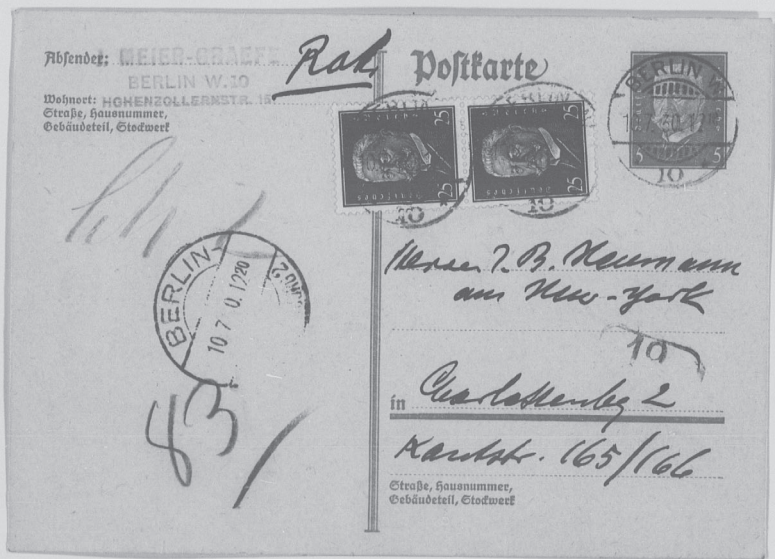 Absender: J. MEIER-GRAEFE
BERLIN W.10
Wohnort: HOHENZOLLERNSTR. 15
Straße, Hausnummer,
Gebäudeteil, Stockwerk
Postkarte
BERLIN W
10
5 5
25 25
25 25
10
10
BERLIN
10 7 0.1220
83
Herrn J. B. Neumann
aus New-York
10
in Charlottenbg 2
Kantstr. 165/166
Straße, Hausnummer,
Gebäudeteil, Stockwerk